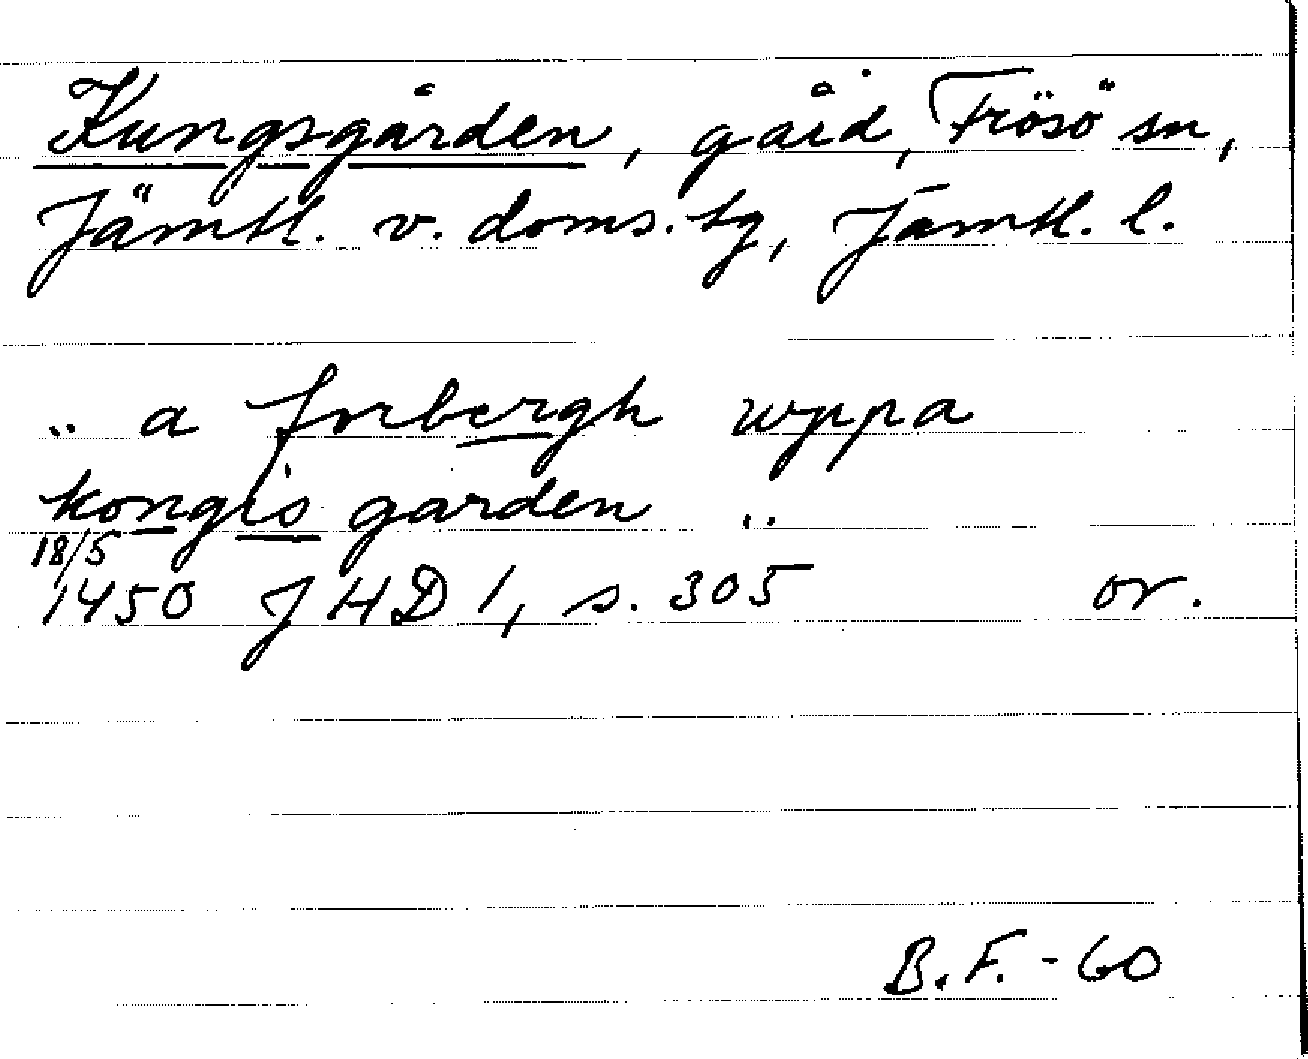 Kungsgården, gård, Frösö sn,
Jämtl. v. doms. tg, Jämtl. l.
.. a forbergh wppa
kongis garden ..
18/5
1450 JHD 1, s. 305 or.
B.F. - 60